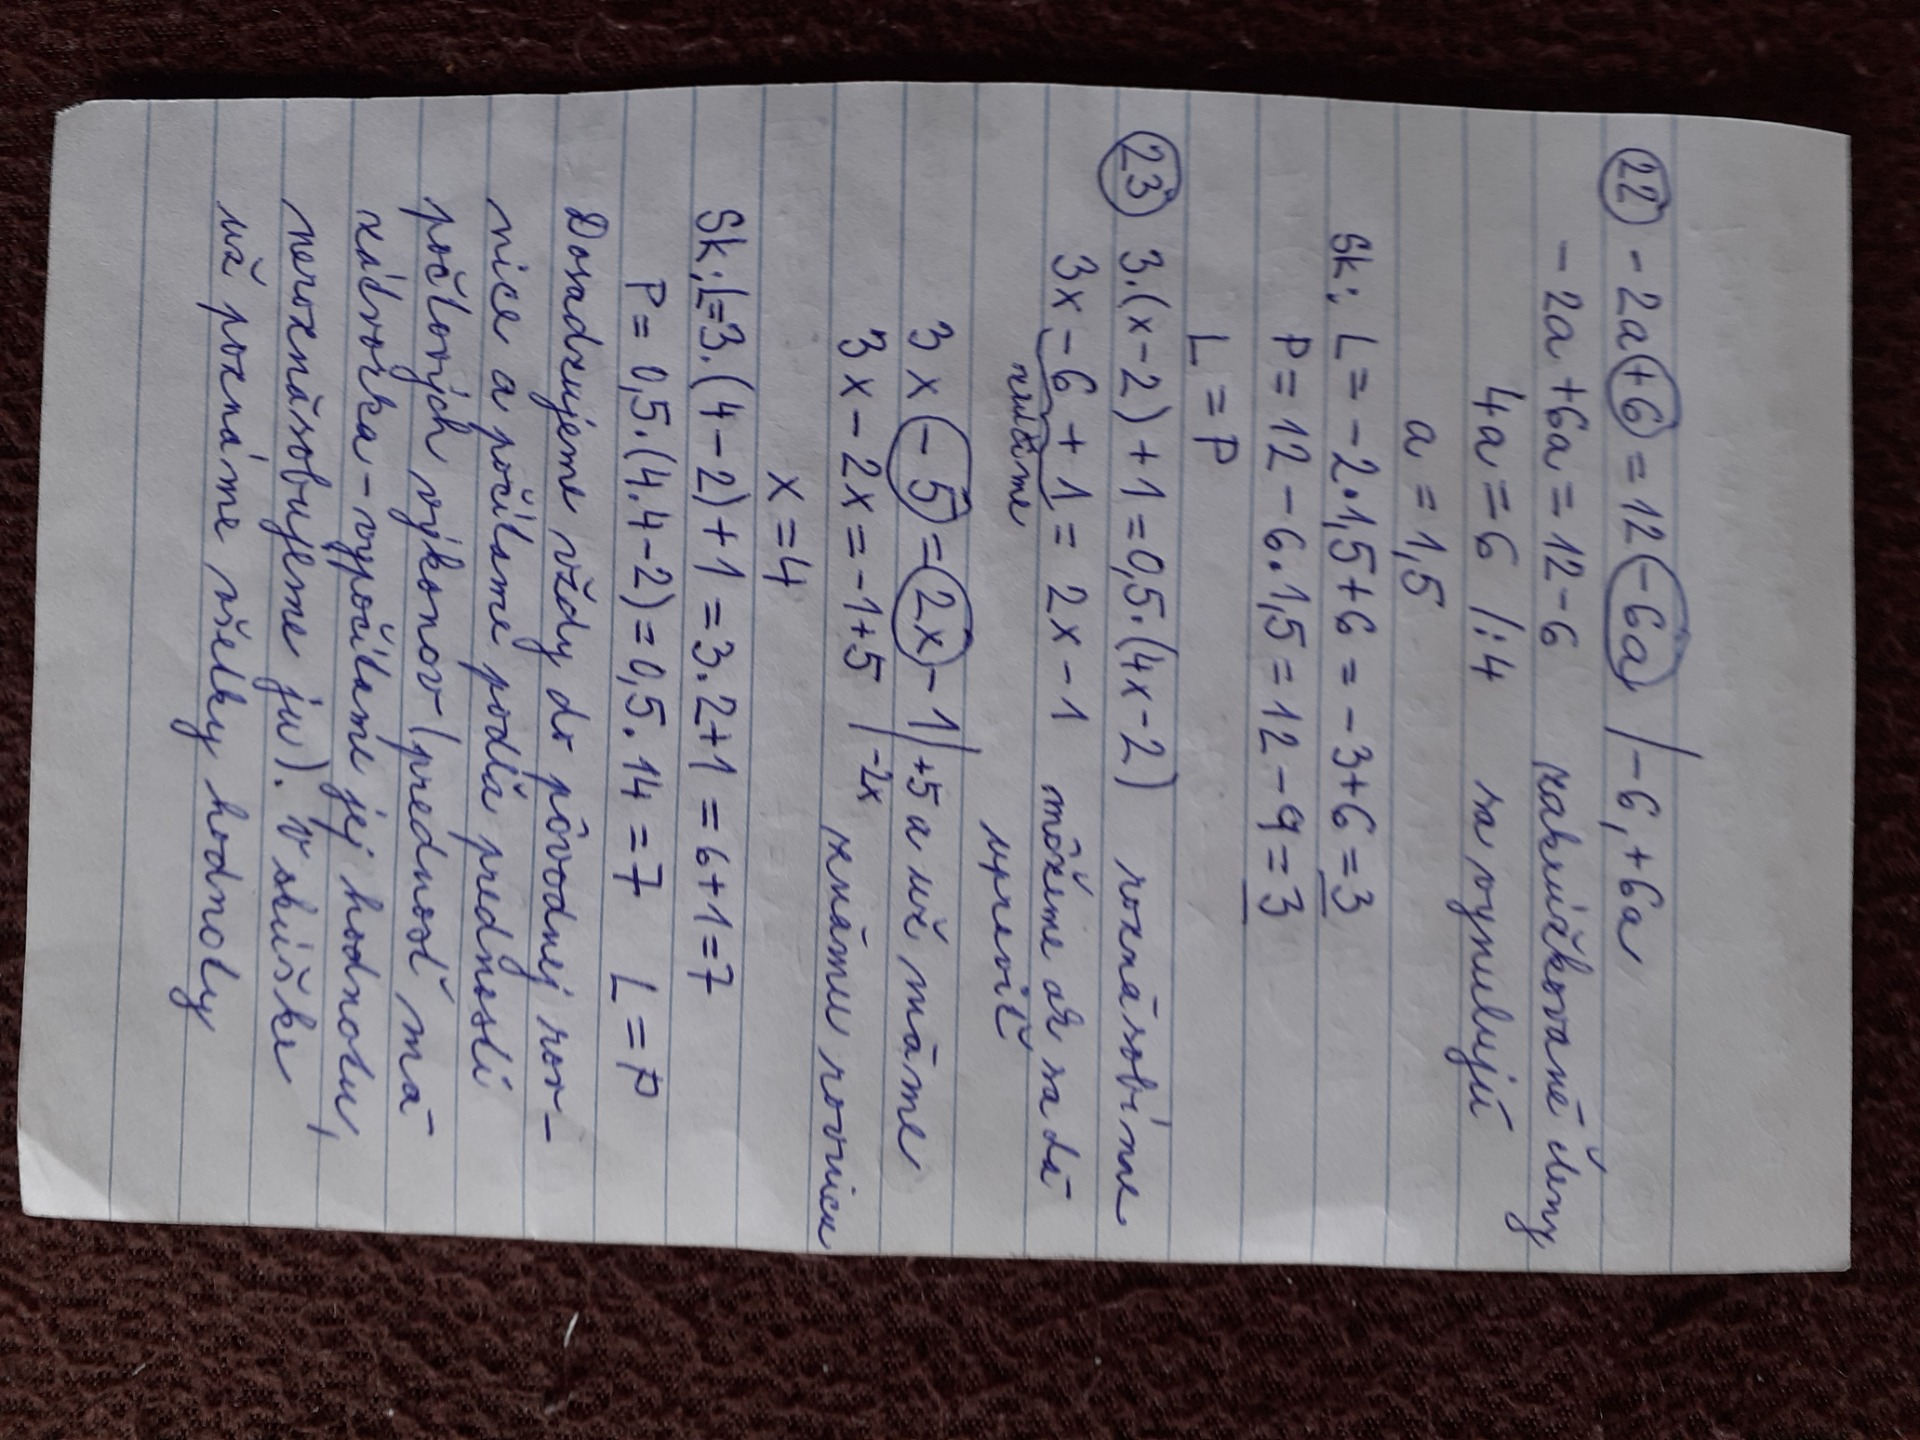 22 - 2a + 6 = 12 - 6a /-6, +6a
- 2a + 6a = 12 - 6 zakrúžkované členy
4a = 6 /:4 sa vynulujú
a = 1,5
Sk: L = - 2 · 1,5 + 6 = - 3 + 6 = 3
P = 12 - 6 · 1,5 = 12 - 9 = 3
L = P
23 3.(x-2) + 1 = 0,5.(4x-2) roznásobíme
3x - 6 + 1 = 2x - 1 môžeme ak sa dá
upraviť
3x - 5 = 2x - 1 /+5 a už máme
3x - 2x = -1+5 /-2x známu rovnicu
x = 4
Sk: L=3.(4-2)+1 = 3.2+1 = 6+1=7
P = 0,5.(4.4-2) = 0,5.14 = 7 L = P
Dosadzujeme vždy do pôvodnej rov-
nice a počítame podľa prednosti
počtových výkonov (prednosť má
zátvorka - vypočítame jej hodnotu,
neroznásobujeme ju). V skúške
už poznáme všetky hodnoty